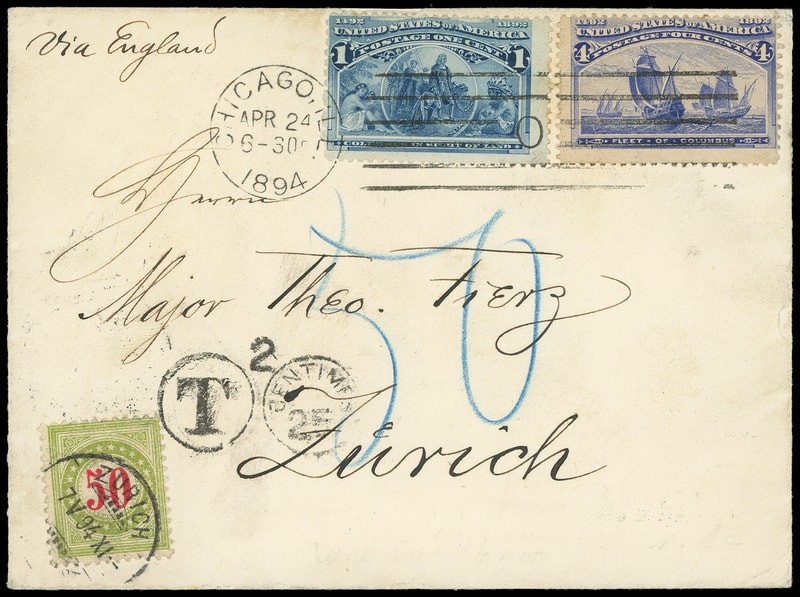 via England
1492 1892
UNITED STATES OF AMERICA
POSTAGE ONE CENT
1 1
COLUMBUS IN SIGHT OF LAND
1492 1892
UNITED STATES OF AMERICA
POSTAGE FOUR CENTS
4 4
FLEET OF COLUMBUS
CHICAGO, ILL
APR 24
6-30 P
1894
Herrn
50
Major Theo. Fierz
2
T
CENTIMES
25
Zürich
50
ZÜRICH
7 V 94 IX